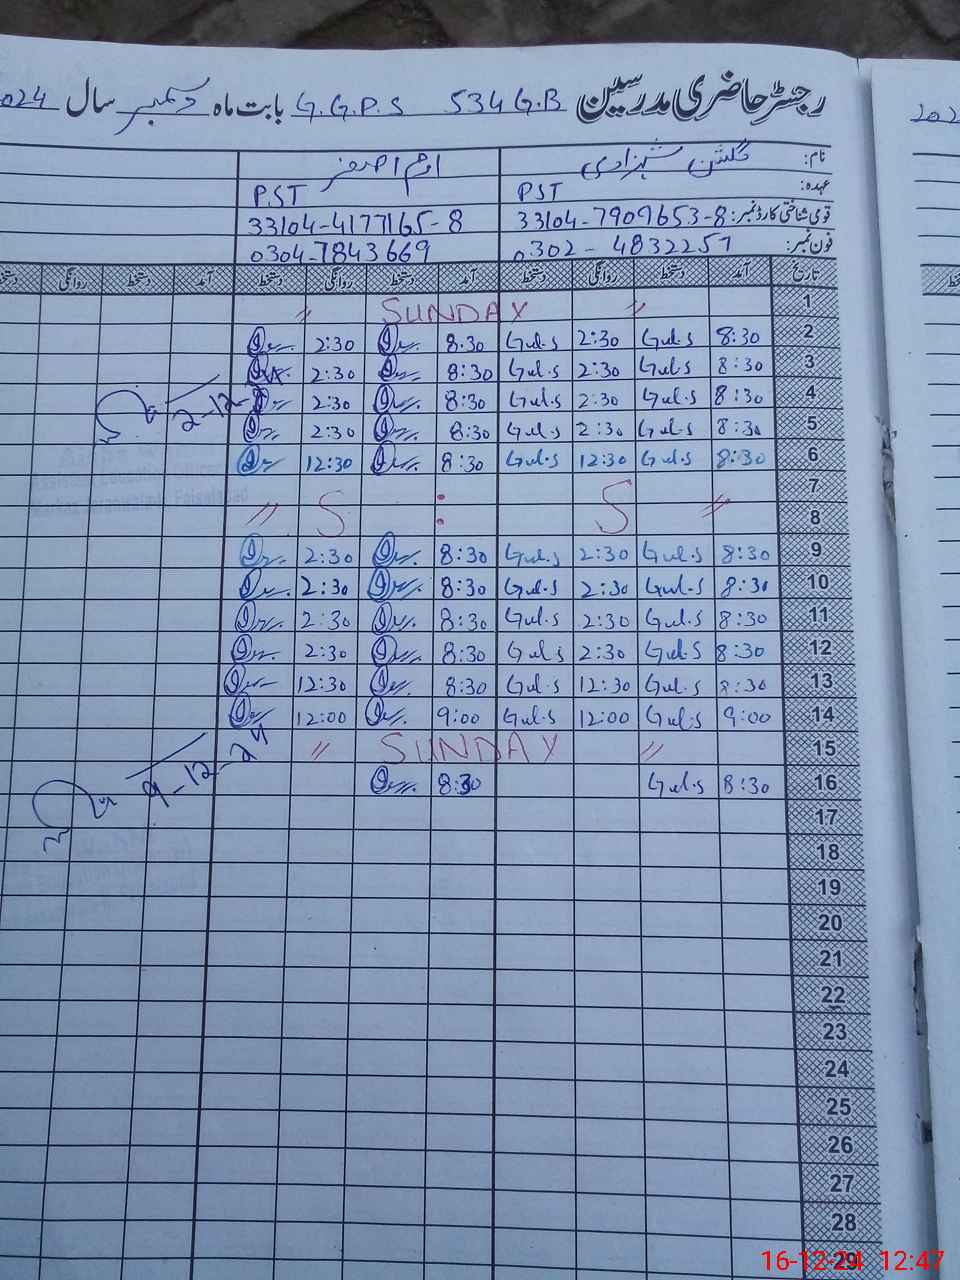 رجسٹر حاضری مدرسین G.G.P.S 534 G.B بابت ماہ دسمبر سال 2024
نام: گلشن شہزادی ارم اصغر
عہدہ: PST PST
قومی شناختی کارڈ نمبر: 33104-7909653-8 33104-4177165-8
فون نمبر: 0302-4832257 0304-7843669
تاریخ آمد دستخط روانگی دستخط آمد دستخط روانگی دستخط آمد دستخط روانگی دستخط
1 " SUNDAY "
2 8:30 Gul.S 2:30 Gul.S 8:30 2:30
3 8:30 Gul.S 2:30 Gul.S 8:30 2:30
4 8:30 Gul.S 2:30 Gul.S 8:30 2:30
2-12-
5 8:30 Gul.S 2:30 Gul.S 8:30 2:30
6 8:30 Gul.S 12:30 Gul.S 8:30 12:30
7
8 " S : S "
9 8:30 Gul.S 2:30 Gul.S 8:30 2:30
10 8:30 Gul.S 2:30 Gul.S 8:30 2:30
11 8:30 Gul.S 2:30 Gul.S 8:30 2:30
12 8:30 Gul.S 2:30 Gul.S 8:30 2:30
13 8:30 Gul.S 12:30 Gul.S 8:30 12:30
14 9:00 Gul.S 12:00 Gul.S 9:00 12:00
15 " SUNDAY "
9-12-24
16 8:30 Gul.S 8:30
17
18
19
20
21
22
23
24
25
26
27
28
29
16-12-24 12:47